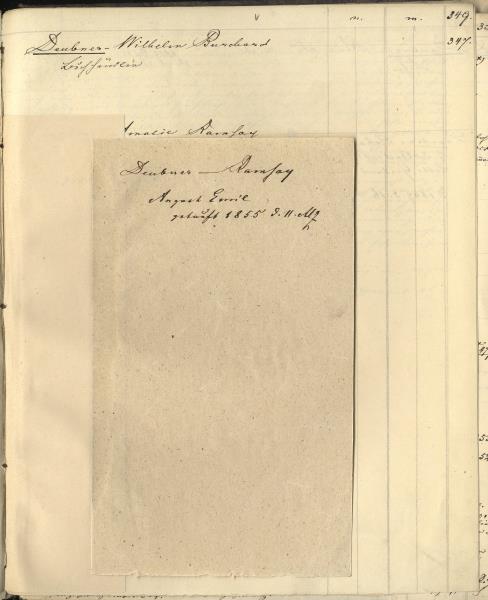 v n. m. 349.
Deubner - Wilhelm Burchard 347.
Buchhändler
Amalie Ramsay
Deubner — Ramsay
August Emil
getauft 1855 d. 11. Mz